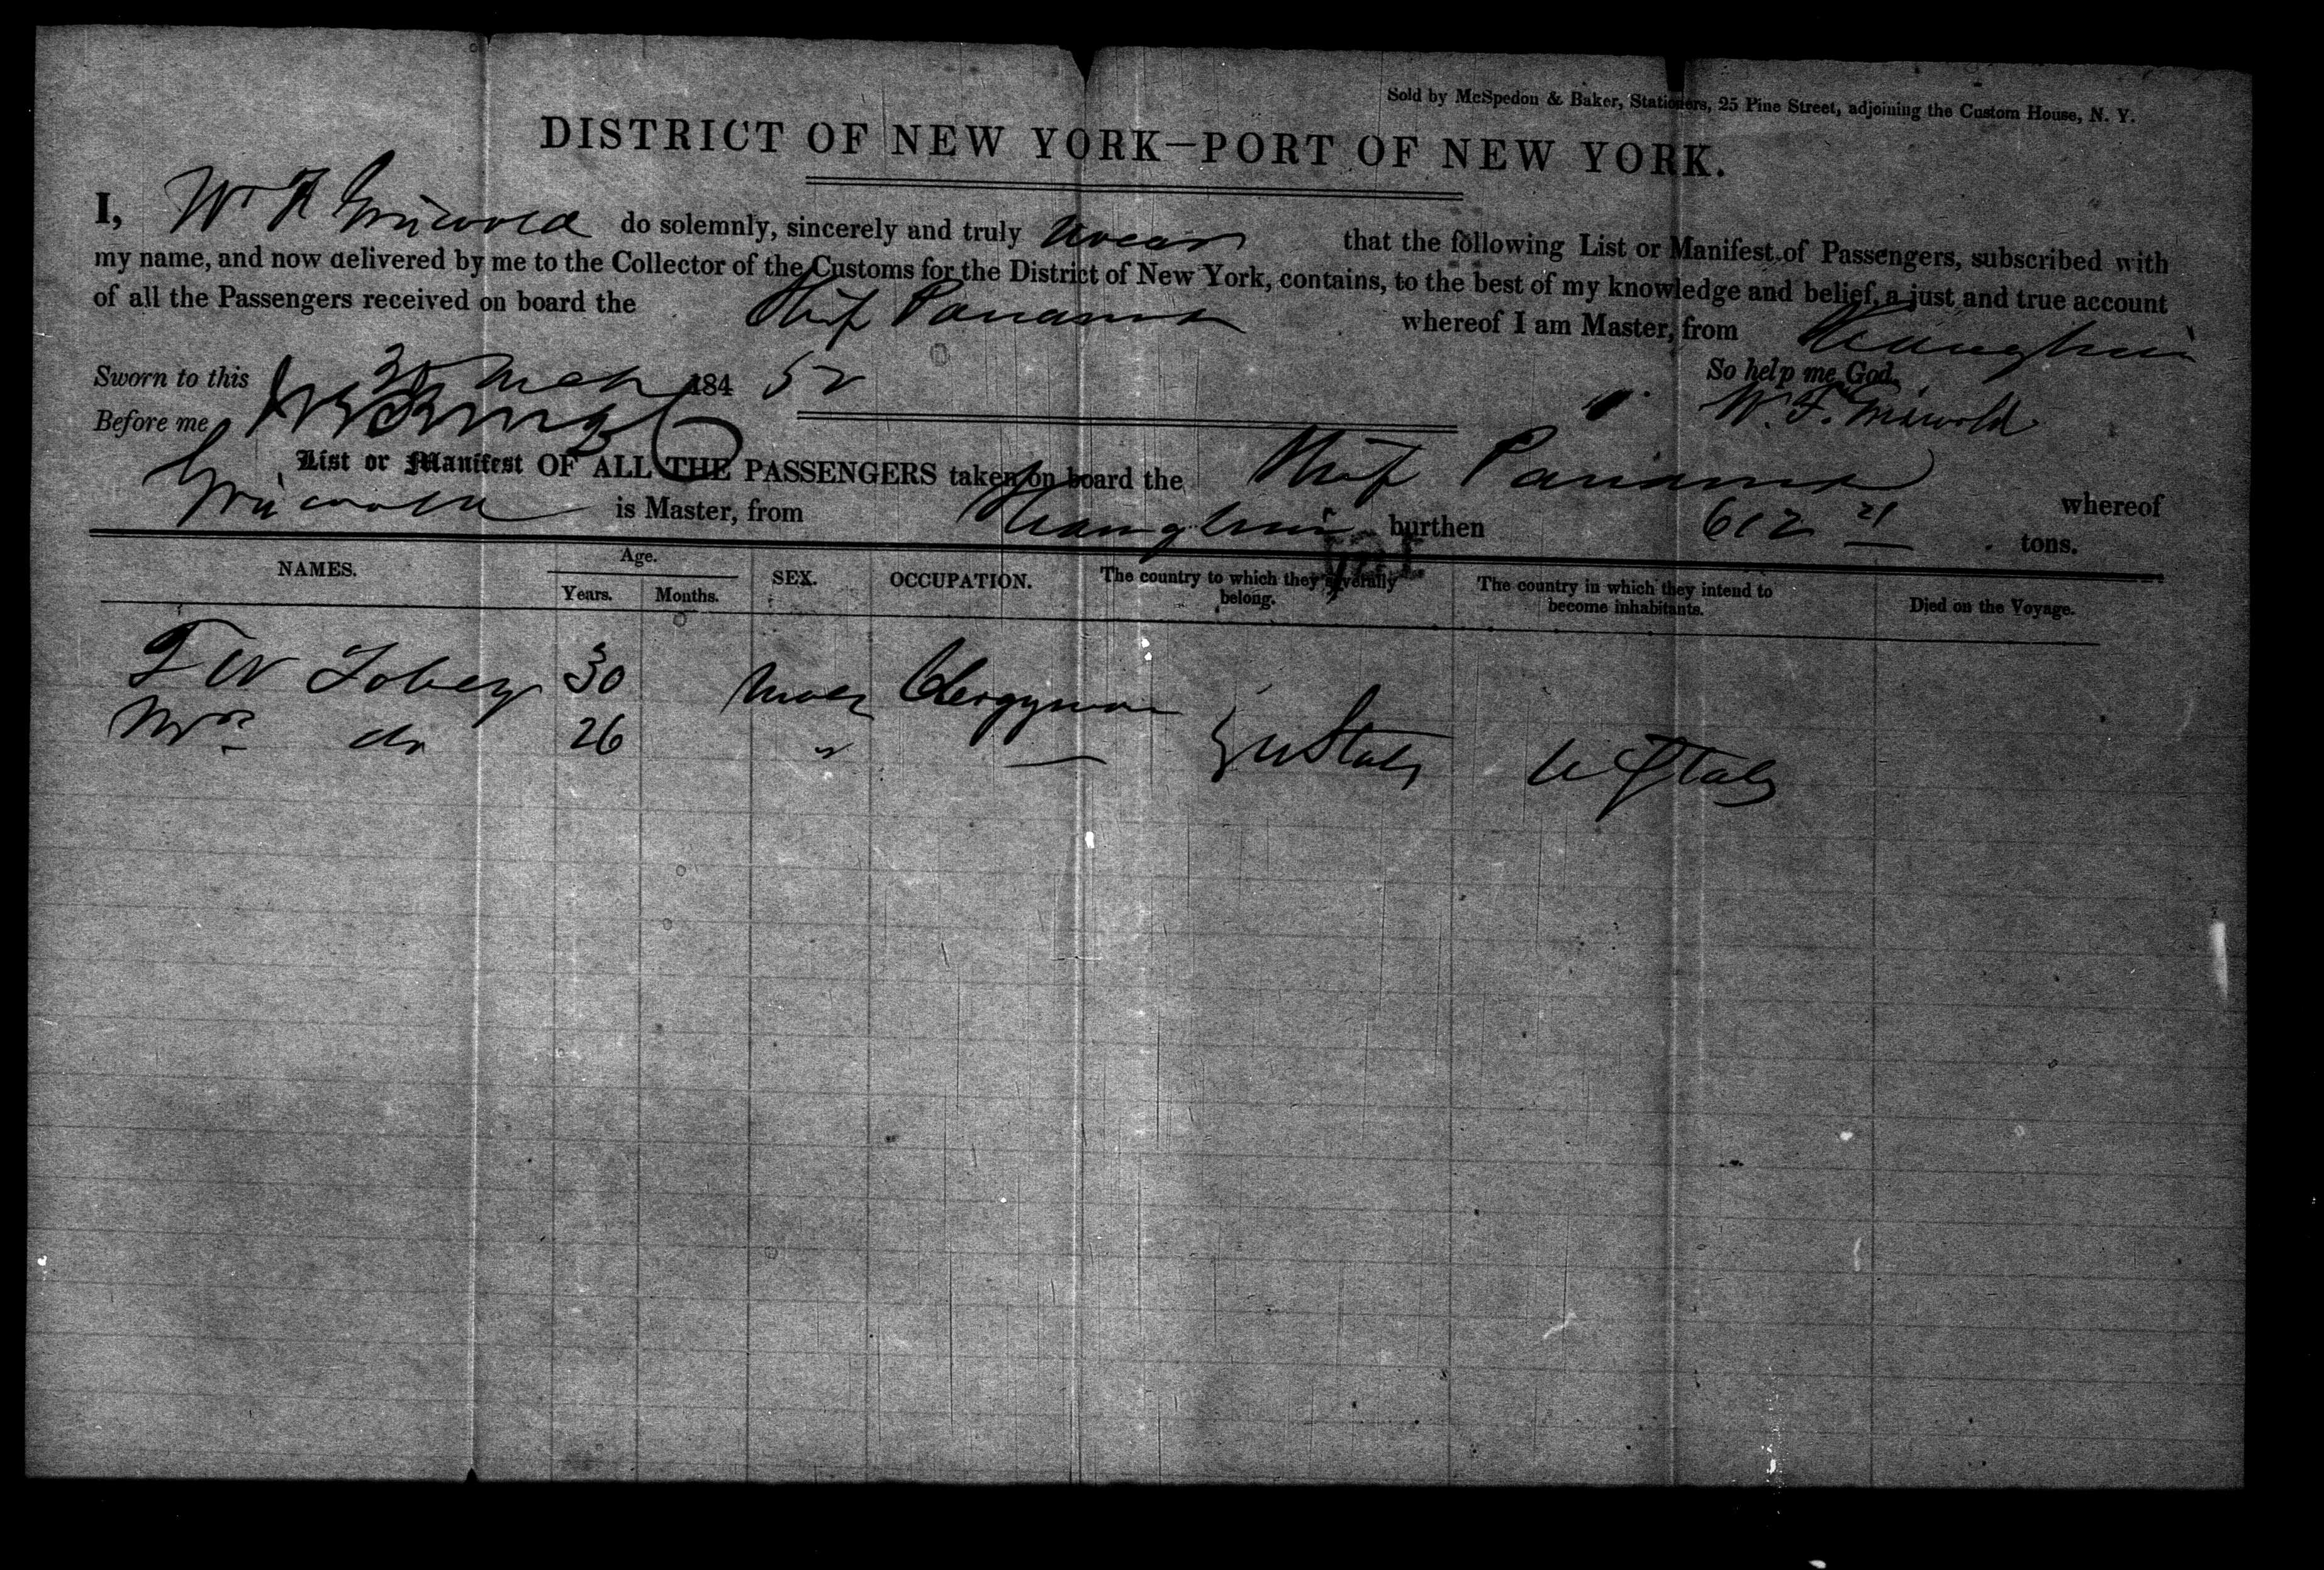 Sold by McSpedon & Baker, Stationers, 25 Pine Street, adjoining the Custom House, N. Y.
DISTRICT OF NEW YORK—PORT OF NEW YORK.
I, Wm F Griswold do solemnly, sincerely and truly swear that the following List or Manifest of Passengers, subscribed with
my name, and now delivered by me to the Collector of the Customs for the District of New York, contains, to the best of my knowledge and belief, a just and true account
of all the Passengers received on board the Ship Panama whereof I am Master, from Shanghai
Sworn to this 30 Mch 184 52 So help me God.
Before me W. F. Griswold
List or Manifest OF ALL THE PASSENGERS taken on board the Ship Panama whereof
Griswold is Master, from Shanghai burthen 612 21 tons.
NAMES. Age. Years. Months. SEX. OCCUPATION. The country to which they severally belong. The country in which they intend to become inhabitants. Died on the Voyage.
T W Tobey 30 Male Clergyman
Mrs do 26 " — } U States U States